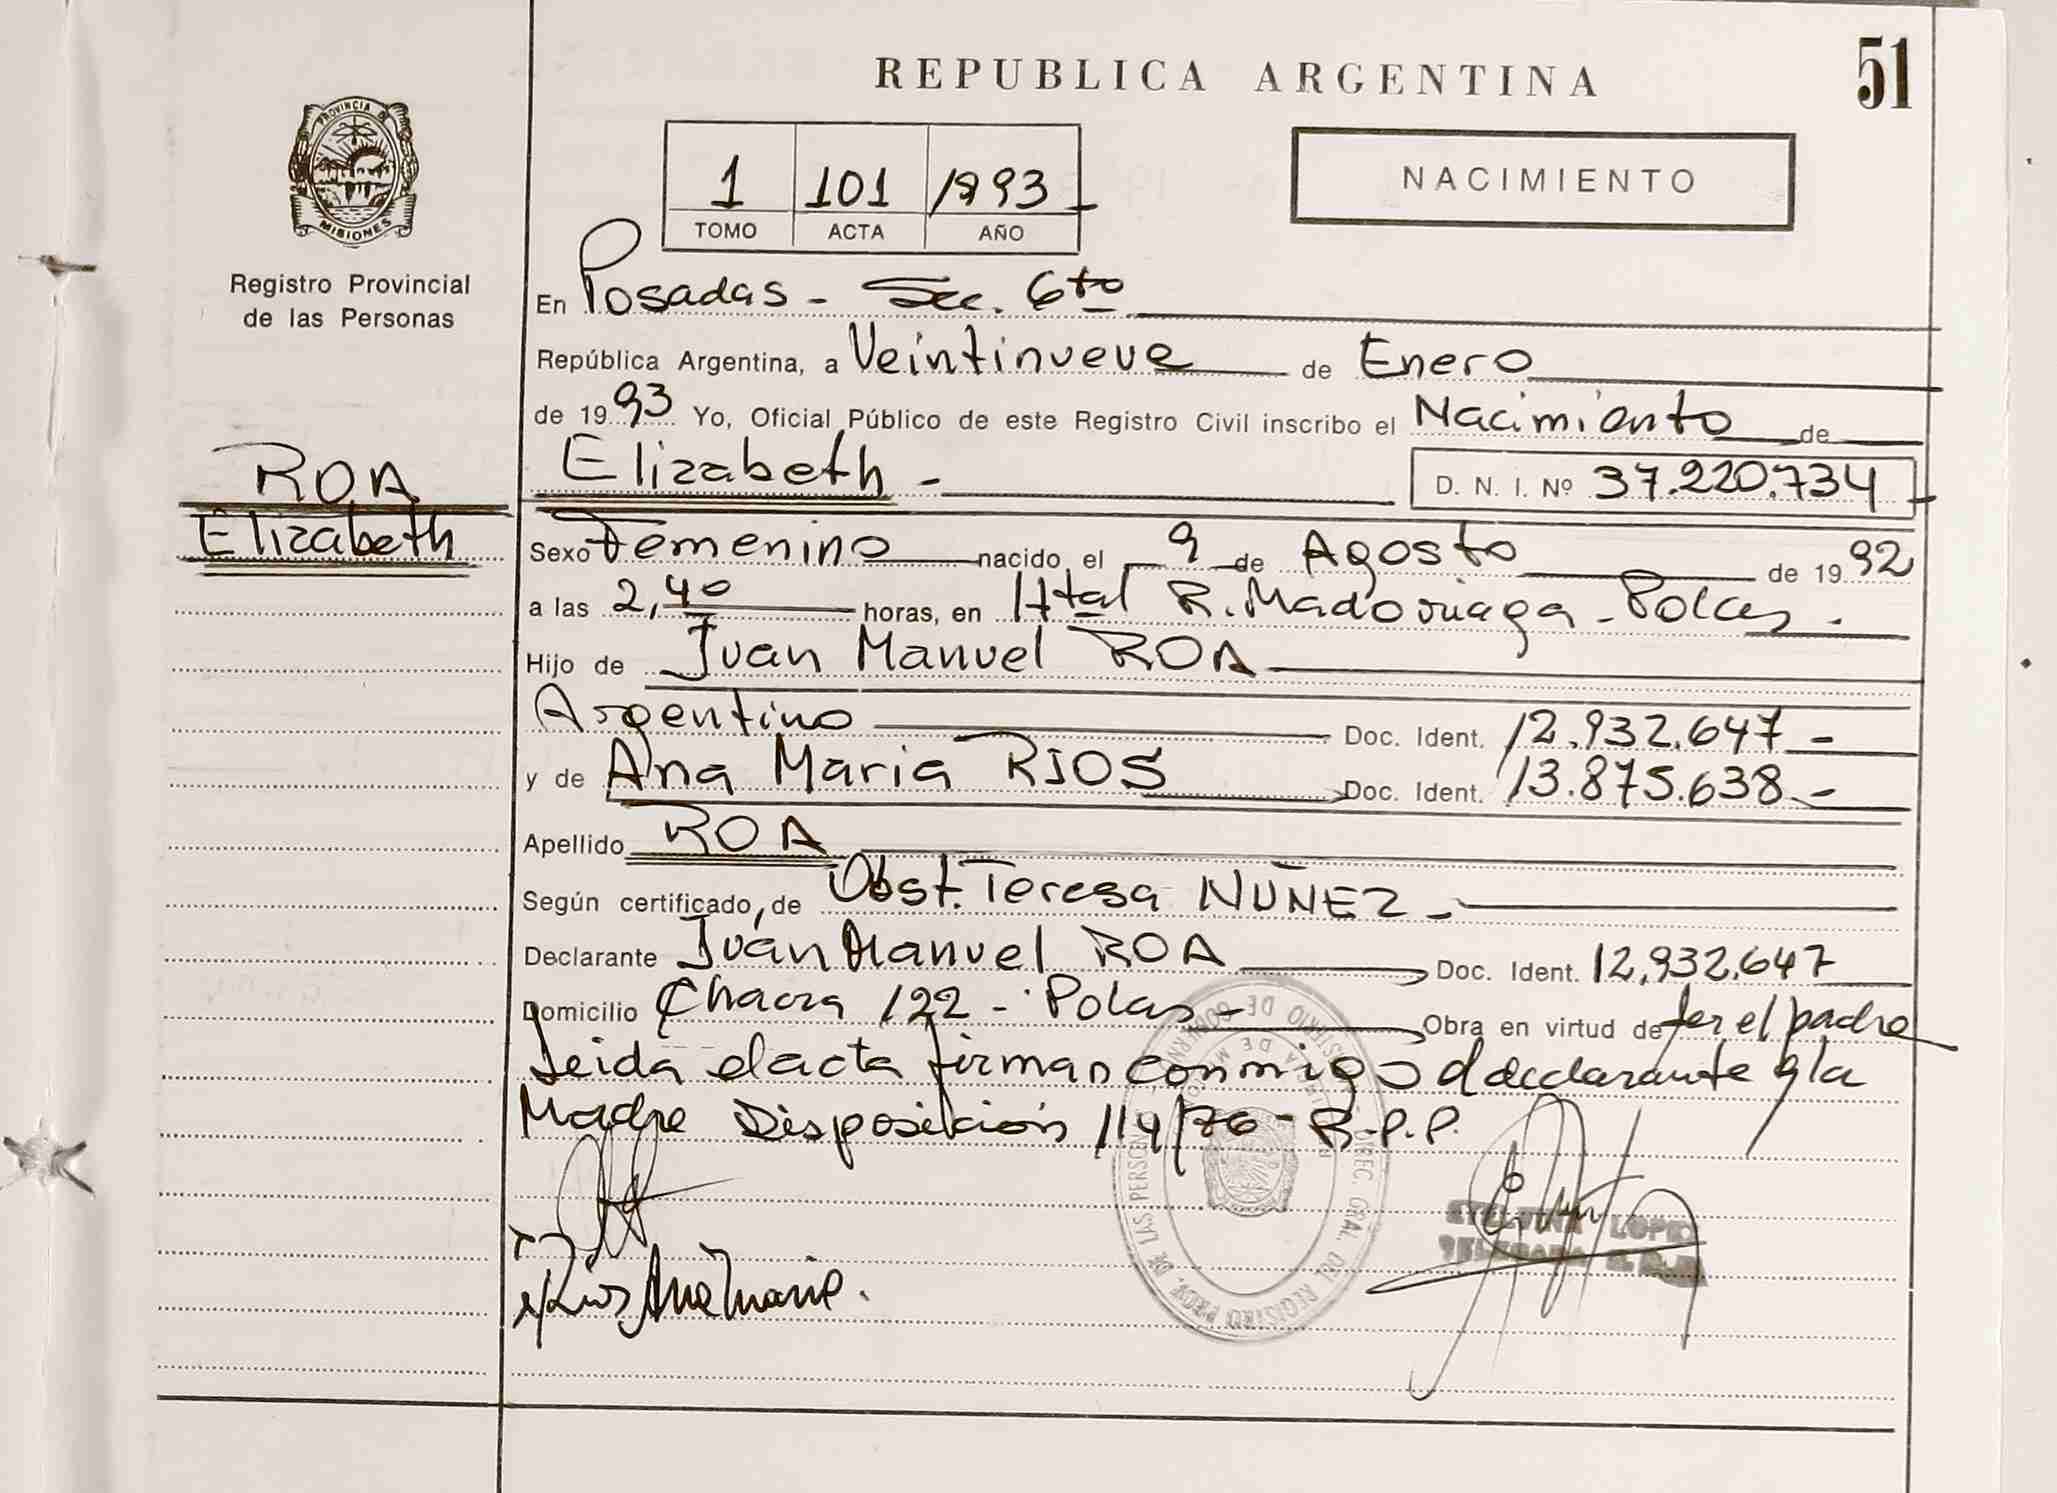 REPUBLICA ARGENTINA
51
PROVINCIA DE
MISIONES
Registro Provincial
de las Personas
1 101 1993
TOMO ACTA AÑO
NACIMIENTO
En Posadas - Sec. 6to
República Argentina, a Veintinueve de Enero
de 1993 Yo, Oficial Público de este Registro Civil inscribo el Nacimiento de
ROA
Elizabeth
Elizabeth - D. N. I. Nº 37.220.734 -
Sexo Femenino nacido el 9 de Agosto de 1992
a las 2,40 horas, en Htal R. Madariaga - Pdas -
Hijo de Juan Manuel ROA
Argentino Doc. Ident. 12.932.647 -
y de Ana Maria RIOS Doc. Ident. 13.875.638 -
Apellido ROA
Según certificado, de Obst. Teresa NUÑEZ -
Declarante Juan Manuel ROA Doc. Ident. 12.932.647
Domicilio Chacra 122 - Pdas - Obra en virtud de ser el padre
Leida el acta firman conmigo el declarante y la
Madre Disposición 114/76 - R.P.P.
Rios Ana Maria.
LOPEZ